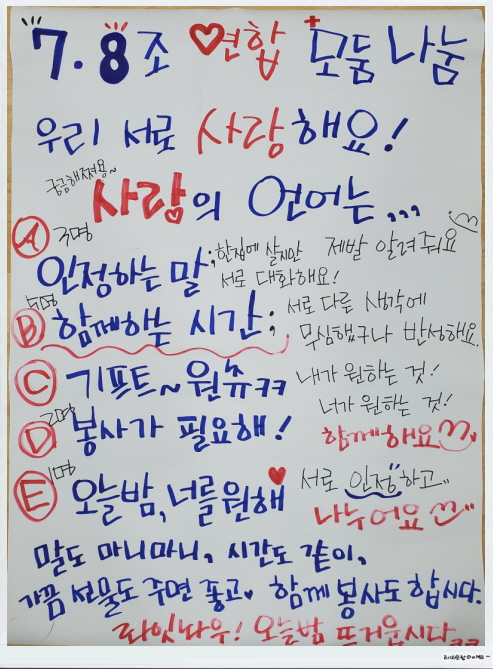 7.8조 연합 모둠나눔
우리 서로 사랑해요!
궁금해져용~
사랑의 언어는,,,
A 3명
인정하는 말; 한집에 살지만 제발 알려줘요
서로 대화해요!
5명
B 함께하는 시간; 서로 다른 생각에
무심했구나 반성해요.
C 기프트~원츄ㅋㅋ 내가 원하는 것!
너가 원하는 것!
2명
D 봉사가 필요해! 함께해요
1명
E 오늘밤, 너를 원해 서로 인정하고
나누어요
말도 마니마니, 시간도 같이,
가끔 선물도 주면 좋고 함께 봉사도 합시다.
롸잇나우! 오늘밤 뜨거웁시다ㅋㅋ